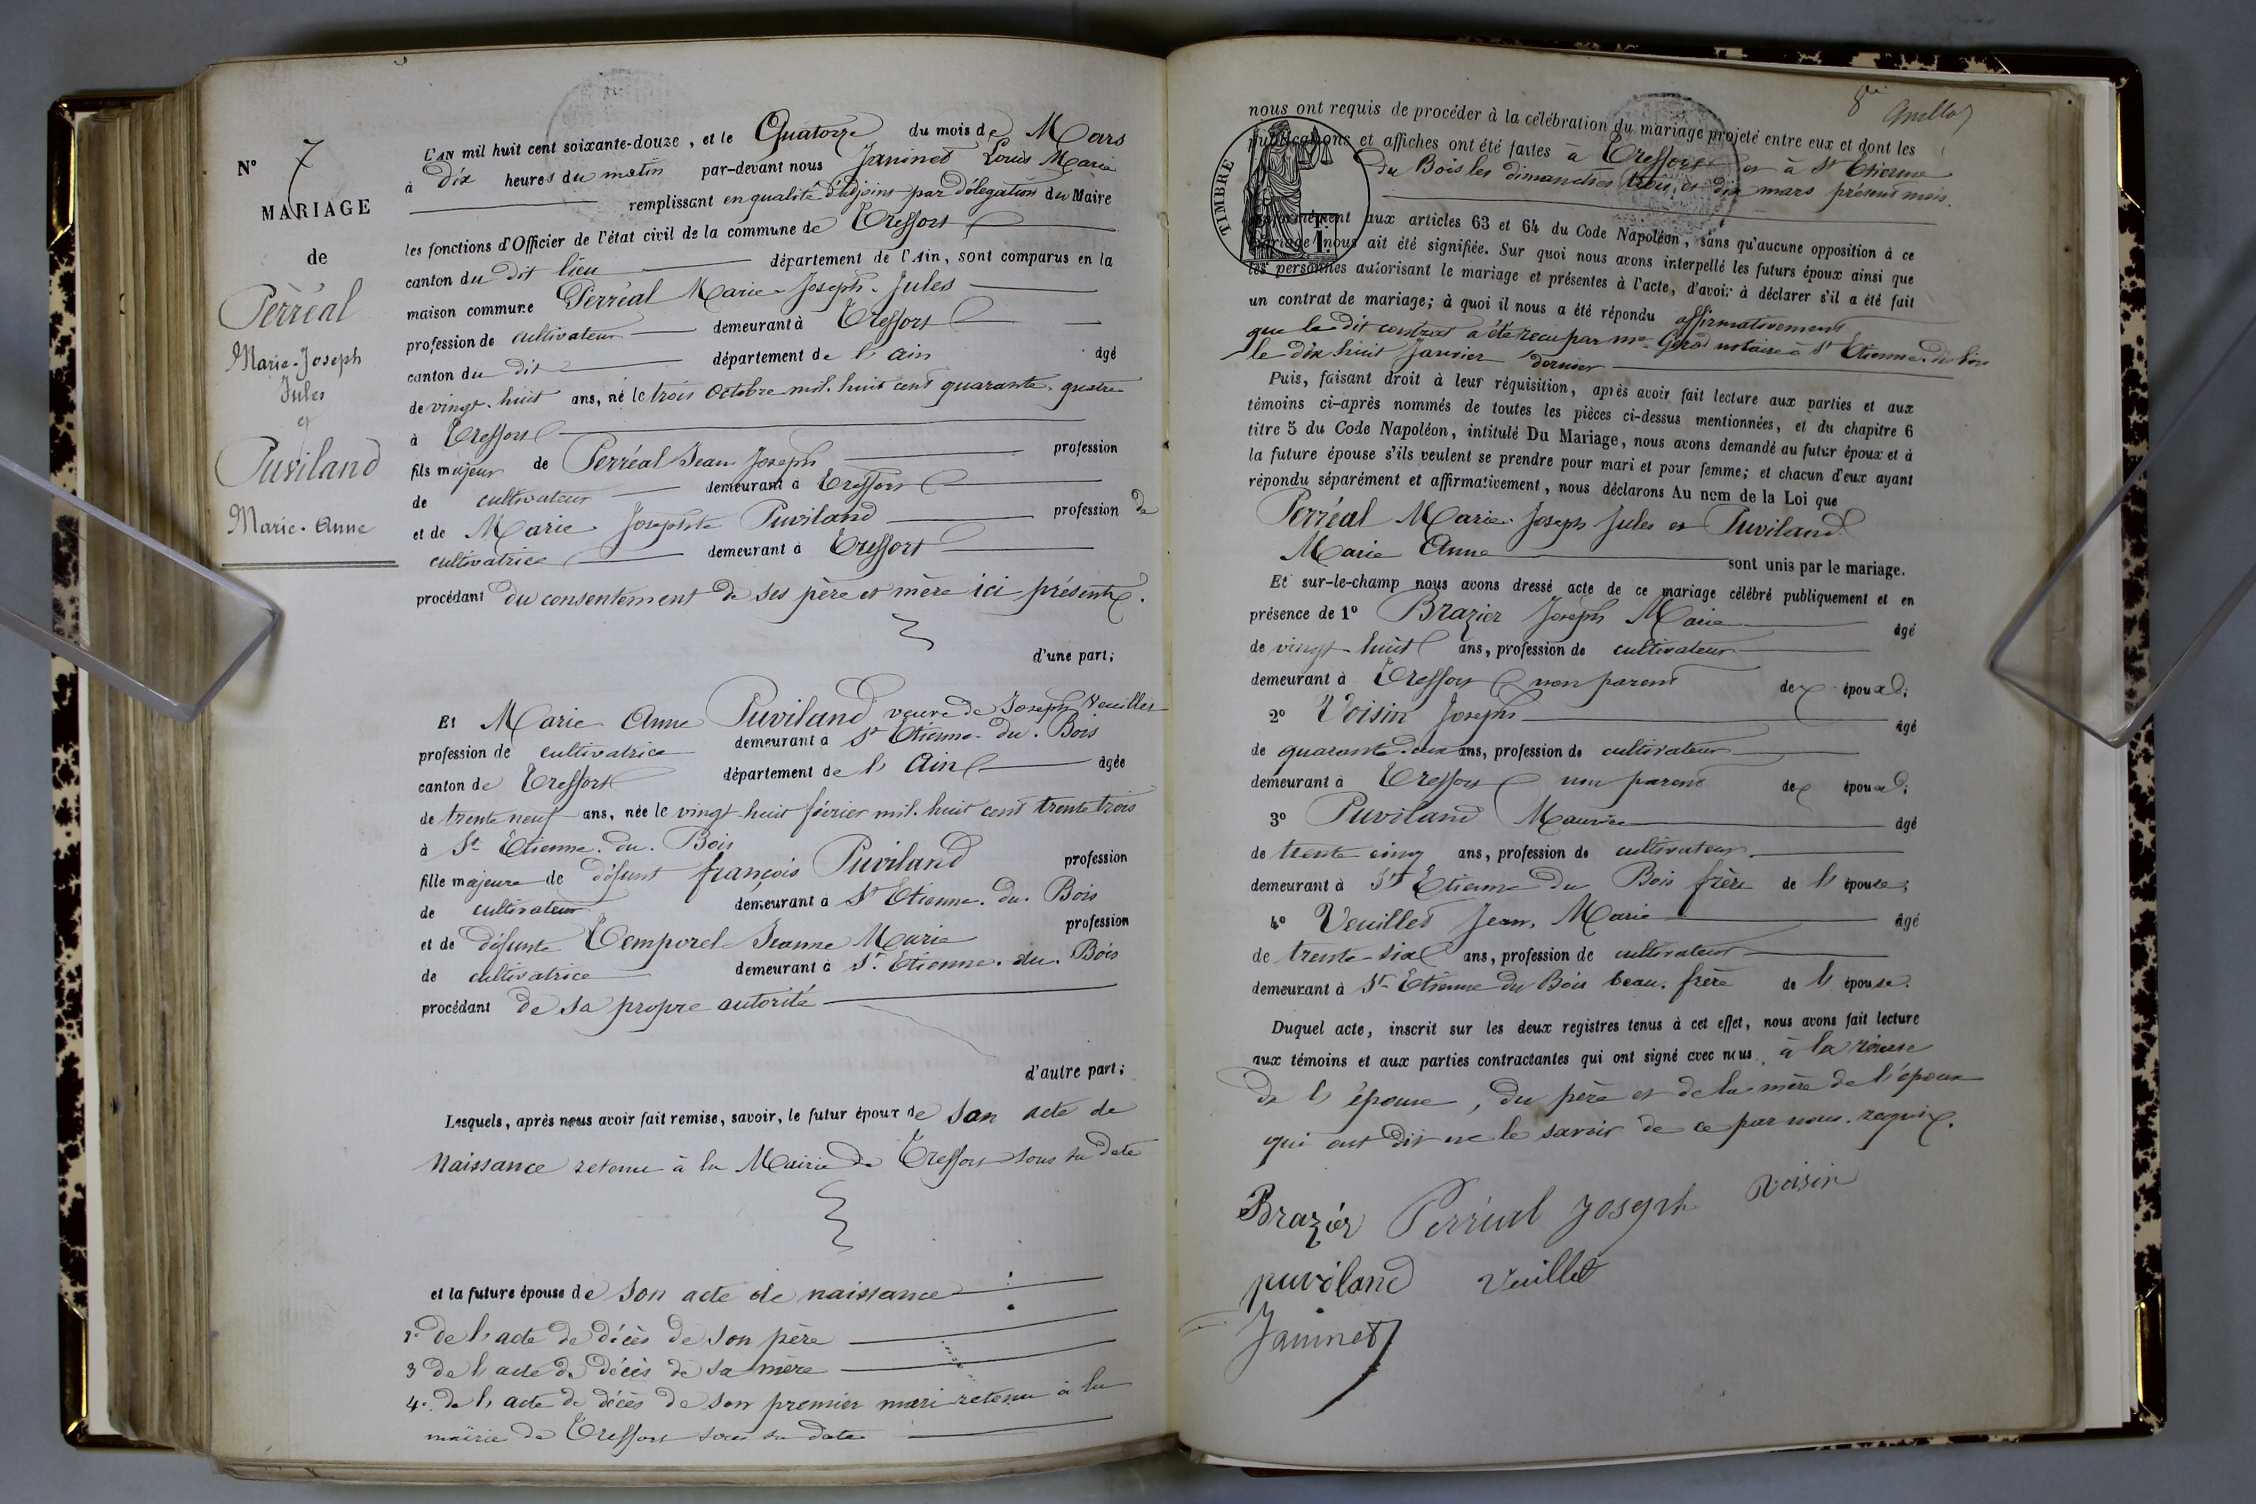 N° 7
MARIAGE
de
Perréal
Marie-Joseph
Jules
et
Puviland
Marie-Anne
L'AN mil huit cent soixante-douze, et le Quatorze du mois de Mars
à dix heures du matin par-devant nous Janinet Louis Marie
remplissant en qualité d'adjoint par délégation du Maire
les fonctions d'Officier de l'état civil de la commune de Treffort
canton du dit lieu département de l'Ain, sont comparus en la
maison commune Perréal Marie-Joseph-Jules
profession de cultivateur demeurant à Treffort
canton du dit département de l'ain âgé
de vingt-huit ans, né le trois octobre mil-huit cent quarante-quatre
à Treffort
fils majeur de Perréal Jean Joseph profession
de cultivateur demeurant à Treffort
et de Marie Josephte Puviland profession de
cultivatrice demeurant à Treffort
procédant du consentement de ses père et mère ici présents.
d'une part;
Et Marie Anne Puviland veuve de Joseph Veuillet
profession de cultivatrice demeurant à St Etienne-du-Bois
canton de Treffort département de l'Ain âgée
de trente neuf ans, née le vingt-huit février mil-huit cent trente trois
à St Etienne-du-Bois
fille majeure de défunt françois Puviland profession
de cultivateur demeurant à St Etienne-du-Bois
et de défunte Temporel Jeanne Marie profession
de cultivatrice demeurant à St Etienne-du-Bois
procédant de sa propre autorité
d'autre part;
Lesquels, après nous avoir fait remise, savoir, le futur époux de son acte de
Naissance retenu à la Mairie de Treffort sous sa date
et la future épouse de son acte de naissance
2° de l'acte de décès de son père
3 de l'acte de décès de sa mère
4° de l'acte de décès de son premier mari retenu à la
mairie de Treffort sous sa date
8e
nous ont requis de procéder à la célébration du mariage projeté entre eux et dont les
publications et affiches ont été faites à Treffort et à St Etienne
du Bois les dimanches trois et dix mars présent mois.
TIMBRE
conformément aux articles 63 et 64 du Code Napoléon, sans qu'aucune opposition à ce
mariage nous ait été signifiée. Sur quoi nous avons interpellé les futurs époux ainsi que
les personnes autorisant le mariage et présentes à l'acte, d'avoir à déclarer s'il a été fait
un contrat de mariage; à quoi il nous a été répondu affirmativement
que le dit contrat a été recu par me Girod notaire à St Etienne-du-bois
le dix huit Janvier dernier
Puis, faisant droit à leur réquisition, après avoir fait lecture aux parties et aux
témoins ci-après nommés de toutes les pièces ci-dessus mentionnées, et du chapitre 6
titre 5 du Code Napoléon, intitulé Du Mariage, nous avons demandé au futur époux et à
la future épouse s'ils veulent se prendre pour mari et pour femme; et chacun d'eux ayant
répondu séparément et affirmativement, nous déclarons Au nom de la Loi que
Perréal Marie-Joseph Jules et Puviland
Marie Anne sont unis par le mariage.
Et sur-le-champ nous avons dressé acte de ce mariage célébré publiquement et en
présence de 1° Brazier Joseph Marie âgé
de vingt-huit ans, profession de cultivateur
demeurant à Treffort non parent des époux;
2° Voisin Joseph âgé
de quarante-deux ans, profession de cultivateur
demeurant à Treffort non parent des époux;
3° Puviland Maurice âgé
de trente cinq ans, profession de cultivateur
demeurant à St Etienne du Bois frère de l'épouse;
4° Veuillet Jean Marie âgé
de trente-six ans, profession de cultivateur
demeurant à St Etienne du Bois beau-frère de l'épouse.
Duquel acte, inscrit sur les deux registres tenus à cet effet, nous avons fait lecture
aux témoins et aux parties contractantes qui ont signé avec nous, à la réserve
de l'épouse, du père et de la mère de l'époux
qui ont dit ne le savoir de ce par nous requis.
Brazier Perréal Joseph Voisin
puviland Veuillet
Janinet